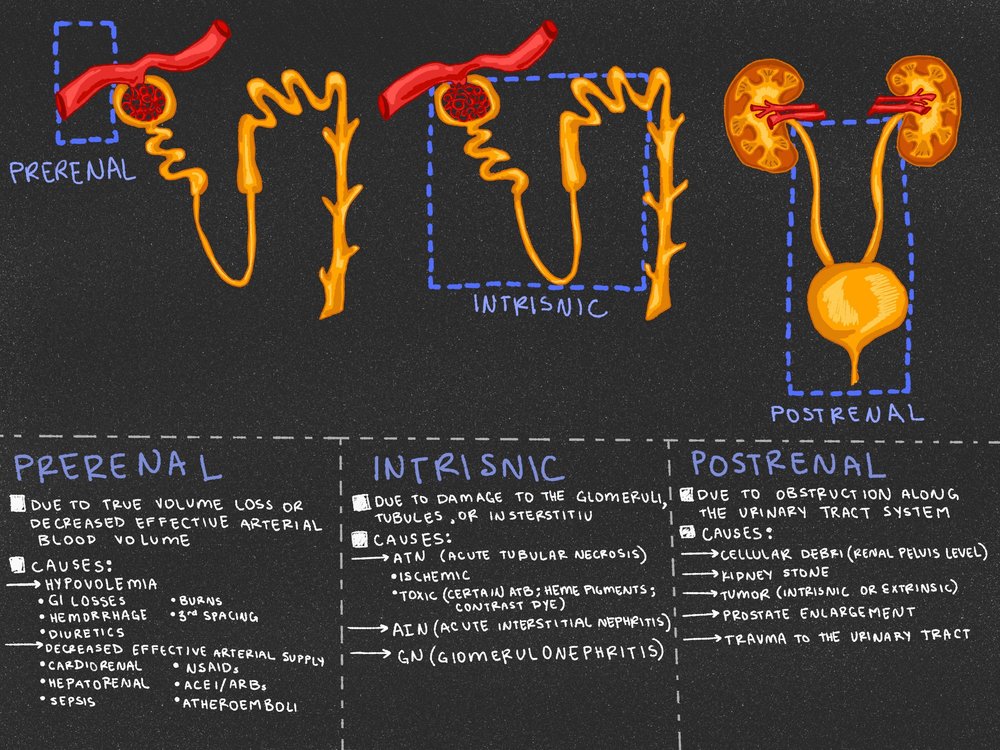 PRERENAL
INTRISNIC
POSTRENAL
PRERENAL
DUE TO TRUE VOLUME LOSS OR
DECREASED EFFECTIVE ARTERIAL
BLOOD VOLUME
CAUSES:
→ HYPOVOLEMIA
• GI LOSSES
• HEMORRHAGE
• DIURETICS
• BURNS
• 3rd SPACING
→ DECREASED EFFECTIVE ARTERIAL SUPPLY
• CARDIORENAL
• HEPATORENAL
• SEPSIS
• NSAIDs
• ACEI/ARBs
• ATHEROEMBOLI
INTRISNIC
DUE TO DAMAGE TO THE GLOMERULI,
TUBULES, OR INSTERSTITIU
CAUSES:
→ ATN (ACUTE TUBULAR NECROSIS)
• ISCHEMIC
• TOXIC (CERTAIN ATB; HEME PIGMENTS;
CONTRAST DYE)
→ AIN (ACUTE INTERSTITIAL NEPHRITIS)
→ GN (GlOMERULONEPHRITIS)
POSTRENAL
DUE TO OBSTRUCTION ALONG
THE URINARY TRACT SYSTEM
CAUSES:
→ CELLULAR DEBRI (RENAL PELVIS LEVEL)
→ KIDNEY STONE
→ TUMOR (INTRISNIC OR EXTRINSIC)
→ PROSTATE ENLARGEMENT
→ TRAUMA TO THE URINARY TRACT